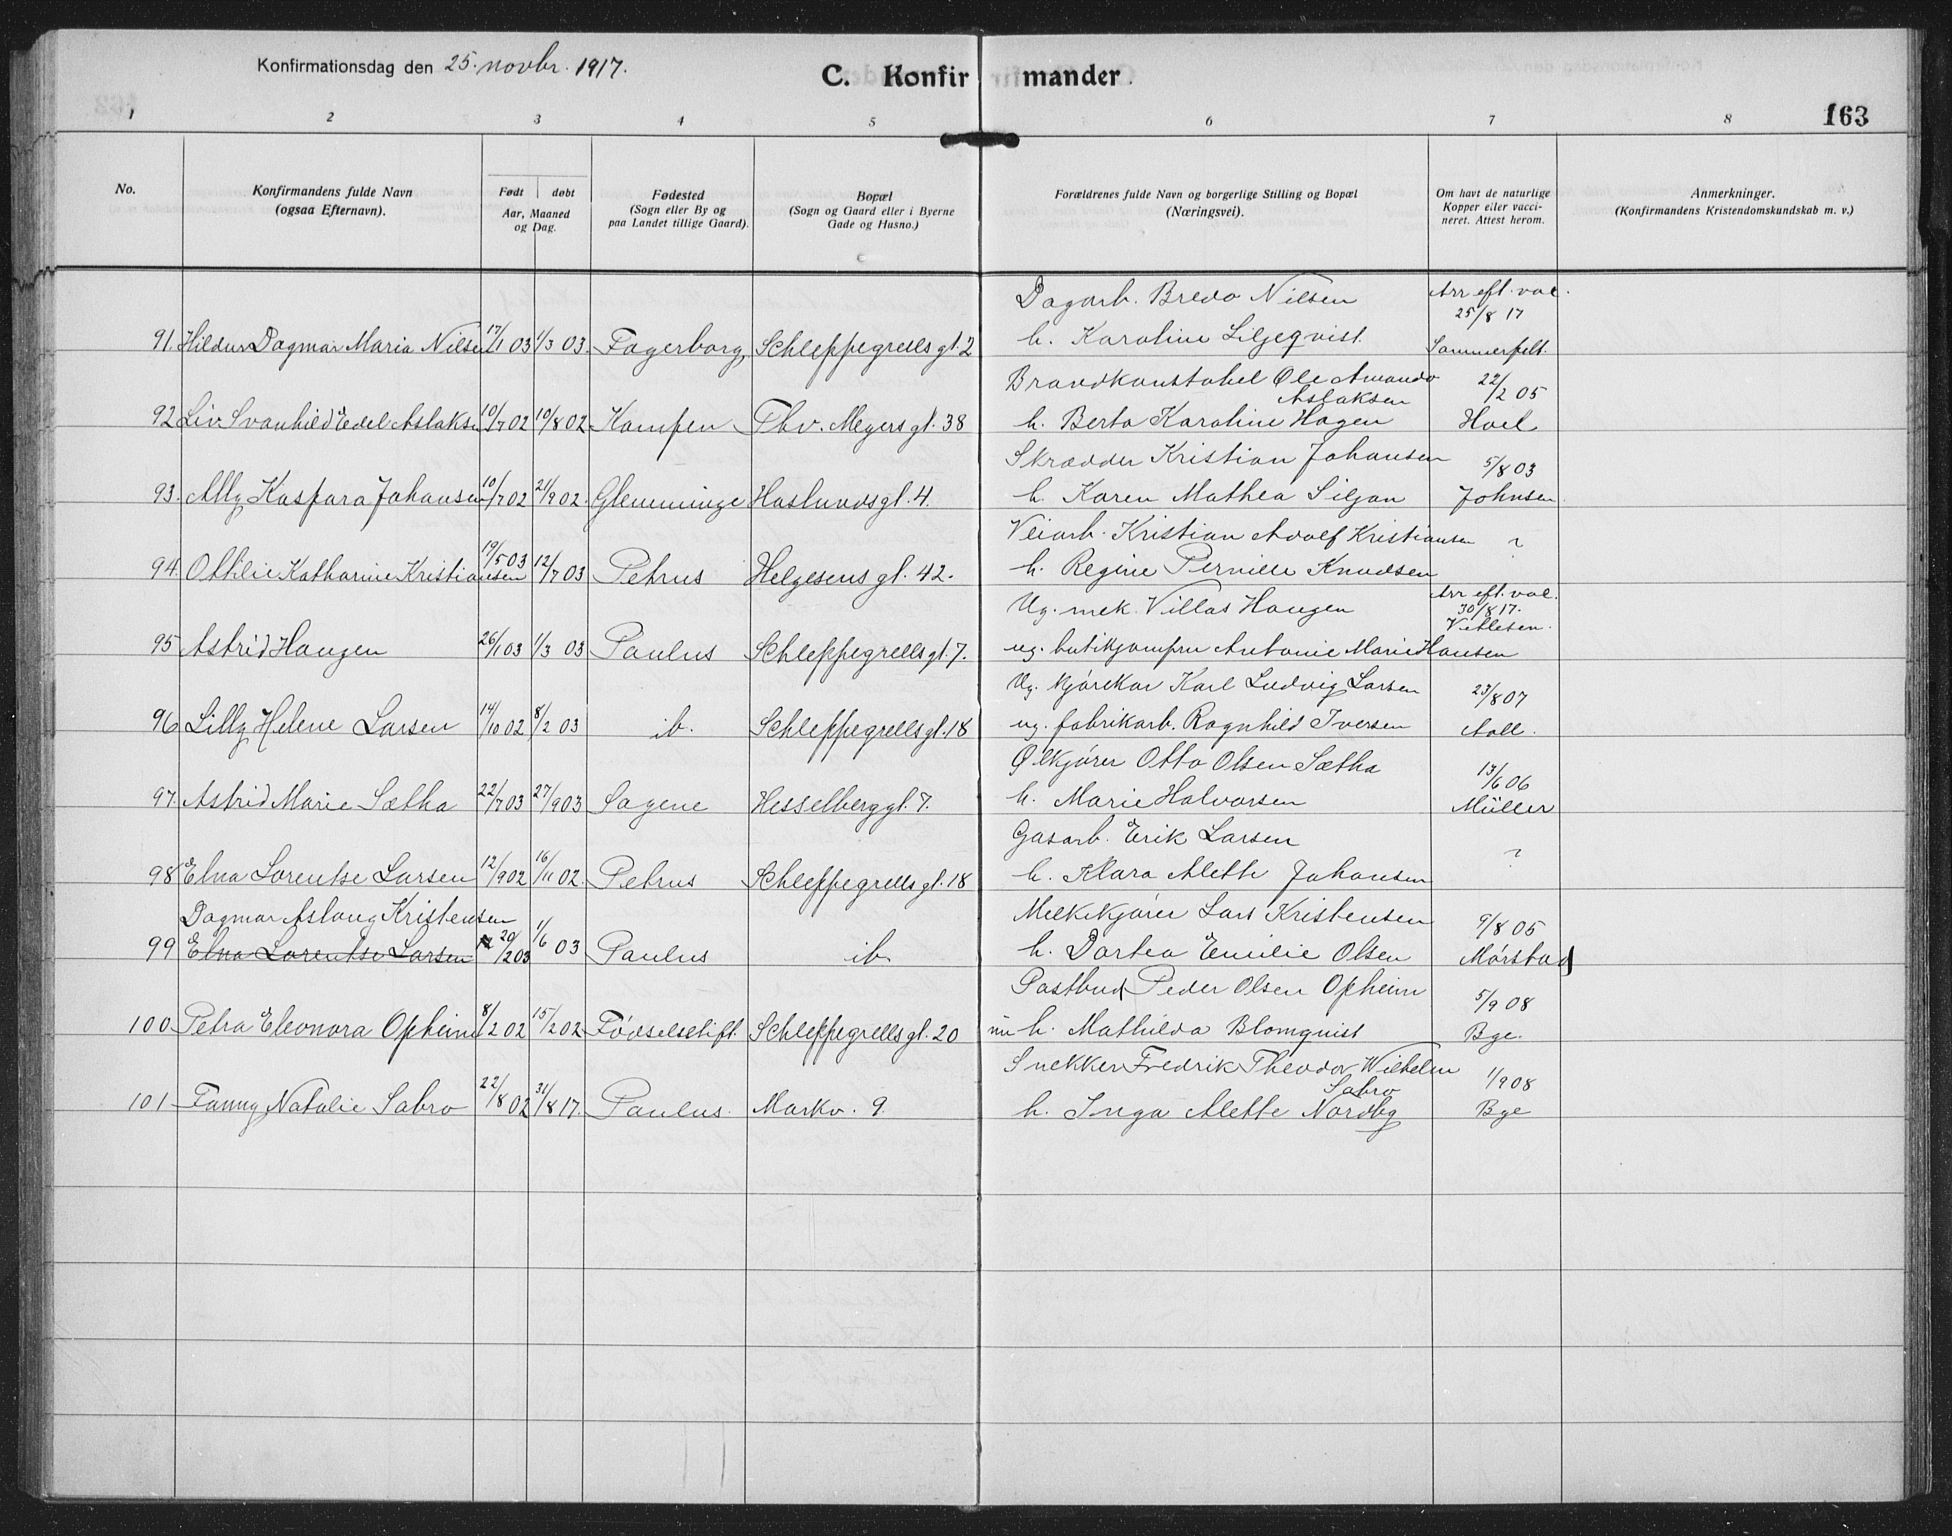 Konfirmationsdag den 25. novbr. 1917.
C. Konfirmander
163
1 2 3 4 5 6 7 8
No.
Konfirmandens fulde Navn
(ogsaa Efternavn).
Født døbt
Aar, Maaned
og Dag.
Fødested
(Sogn eller By og
paa Landet tillige Gaard).
Bopæl
(Sogn og Gaard eller i Byerne
Gade og Husno.)
Forældrenes fulde Navn og borgerlige Stilling og Bopæl
(Næringsvei).
Om havt de naturlige
Kopper eller vacci-
neret. Attest herom.
Anmerkninger.
(Konfirmandens Kristendomskundskab m. v.)
Dagarb. Bredo Nilsen Arr eft. vac.
25/8 17
91. Hildur Dagmar Maria Nilsen 17/1 03 1/3 03. Fagerborg Schleppegrells gt. 2 h. Karoline Liljeqvist. Sommerfelt.
Brandkonstabel Ole Amando 22/2 05
Aslaksen
92 Liv Svanhild Edel Aslaksen 10/7 02 10/8 02 Kampen Thv. Meyers gt. 38 h. Berta Karoline Hagen Hoel
Skrædder Kristian Johansen 5/8 03
93. Ally Kaspara Johansen 10/7 02 21/9 02. Glemminge Haslunds gt. 4. h. Karen Mathea Siljan Johnsen
Veiarb. Kristian Adolf Kristiansen ?
94. Ottilie Katharine Kristiansen 19/5 03 12/7 03 Petrus Helgesens gt. 42. h. Regine Pernille Knudsen
Ug. mek. Villas Haugen Arr eft. vac.
30/8 17.
Vetlesen.
95 Astrid Haugen 26/1 03 1/3 03 Paulus Schleppegrells gt. 7. ug. butikjomfru Antonie Marie Hansen
Ug. kjørekar Karl Ludvig Larsen 23/8 07
96 Lilly Helene Larsen 14/10 02 8/2 03 ib. Schleppegrells gt. 18 ug. fabrikarb. Ragnhild Iversen Aall.
Ølkjører Otto Olsen Sætha 13/6 06
97. Astrid Marie Sætha 22/7 03 27/9 03 Sagene Hesselberg gt. 7. h. Marie Halvorsen Müller
Gasarb. Erik Larsen ?
98 Elna Lorentse Larsen 12/9 02 16/11 02. Petrus Schleppegrells gt. 18 h. Klara Alette Johansen
Dagmar Aslaug Kristensen Melkekjører Lars Kristensen 9/8 05
99 Elna Lorentse Larsen 20/2 03 1/6 03 Paulus ib h. Dortea Emilie Olsen Mørstad
Postbud Peder Olsen Opheim 5/9 08
100 Petra Eleonora Opheim 8/2 02 15/2 02 Fødselsstift. Schleppegrells gt. 20 nu h. Mathilda Blomqvist Bge.
Snekker Fredrik Theodor Wilhelm 1/9 08
Sabro
101 Fanny Natalie Sabro 22/8 02 31/8 17. Paulus. Markv. 9. h. Inga Alette Nordby Bge